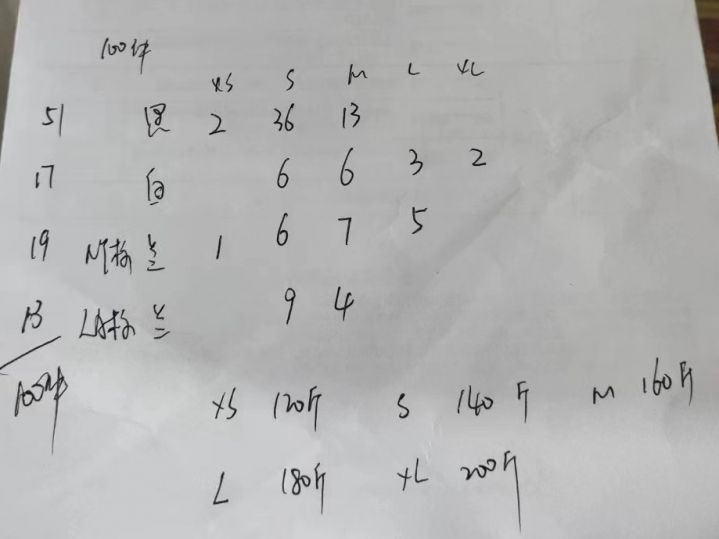 100件
XS S M L XL
51 黑 2 36 13
17 白 6 6 3 2
19 NY标 兰 1 6 7 5
13 LA标 兰 9 4
100件
XS 120斤 S 140斤 M 160斤
L 180斤 XL 200斤